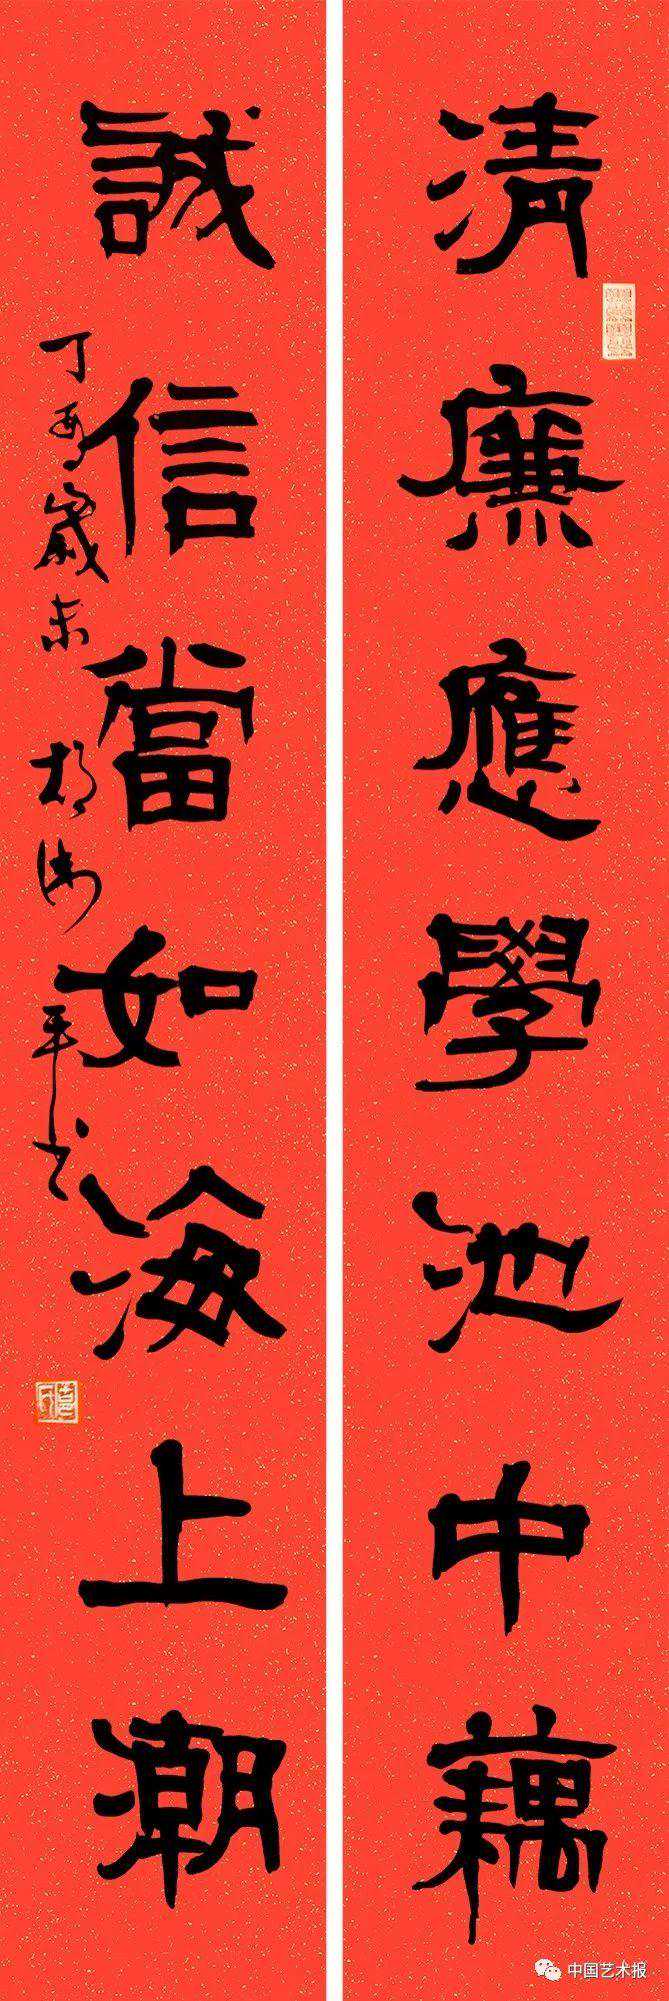 清廉應學池中藕
誠信當如海上潮
丁酉歲末 胡衛平书
中国艺术报